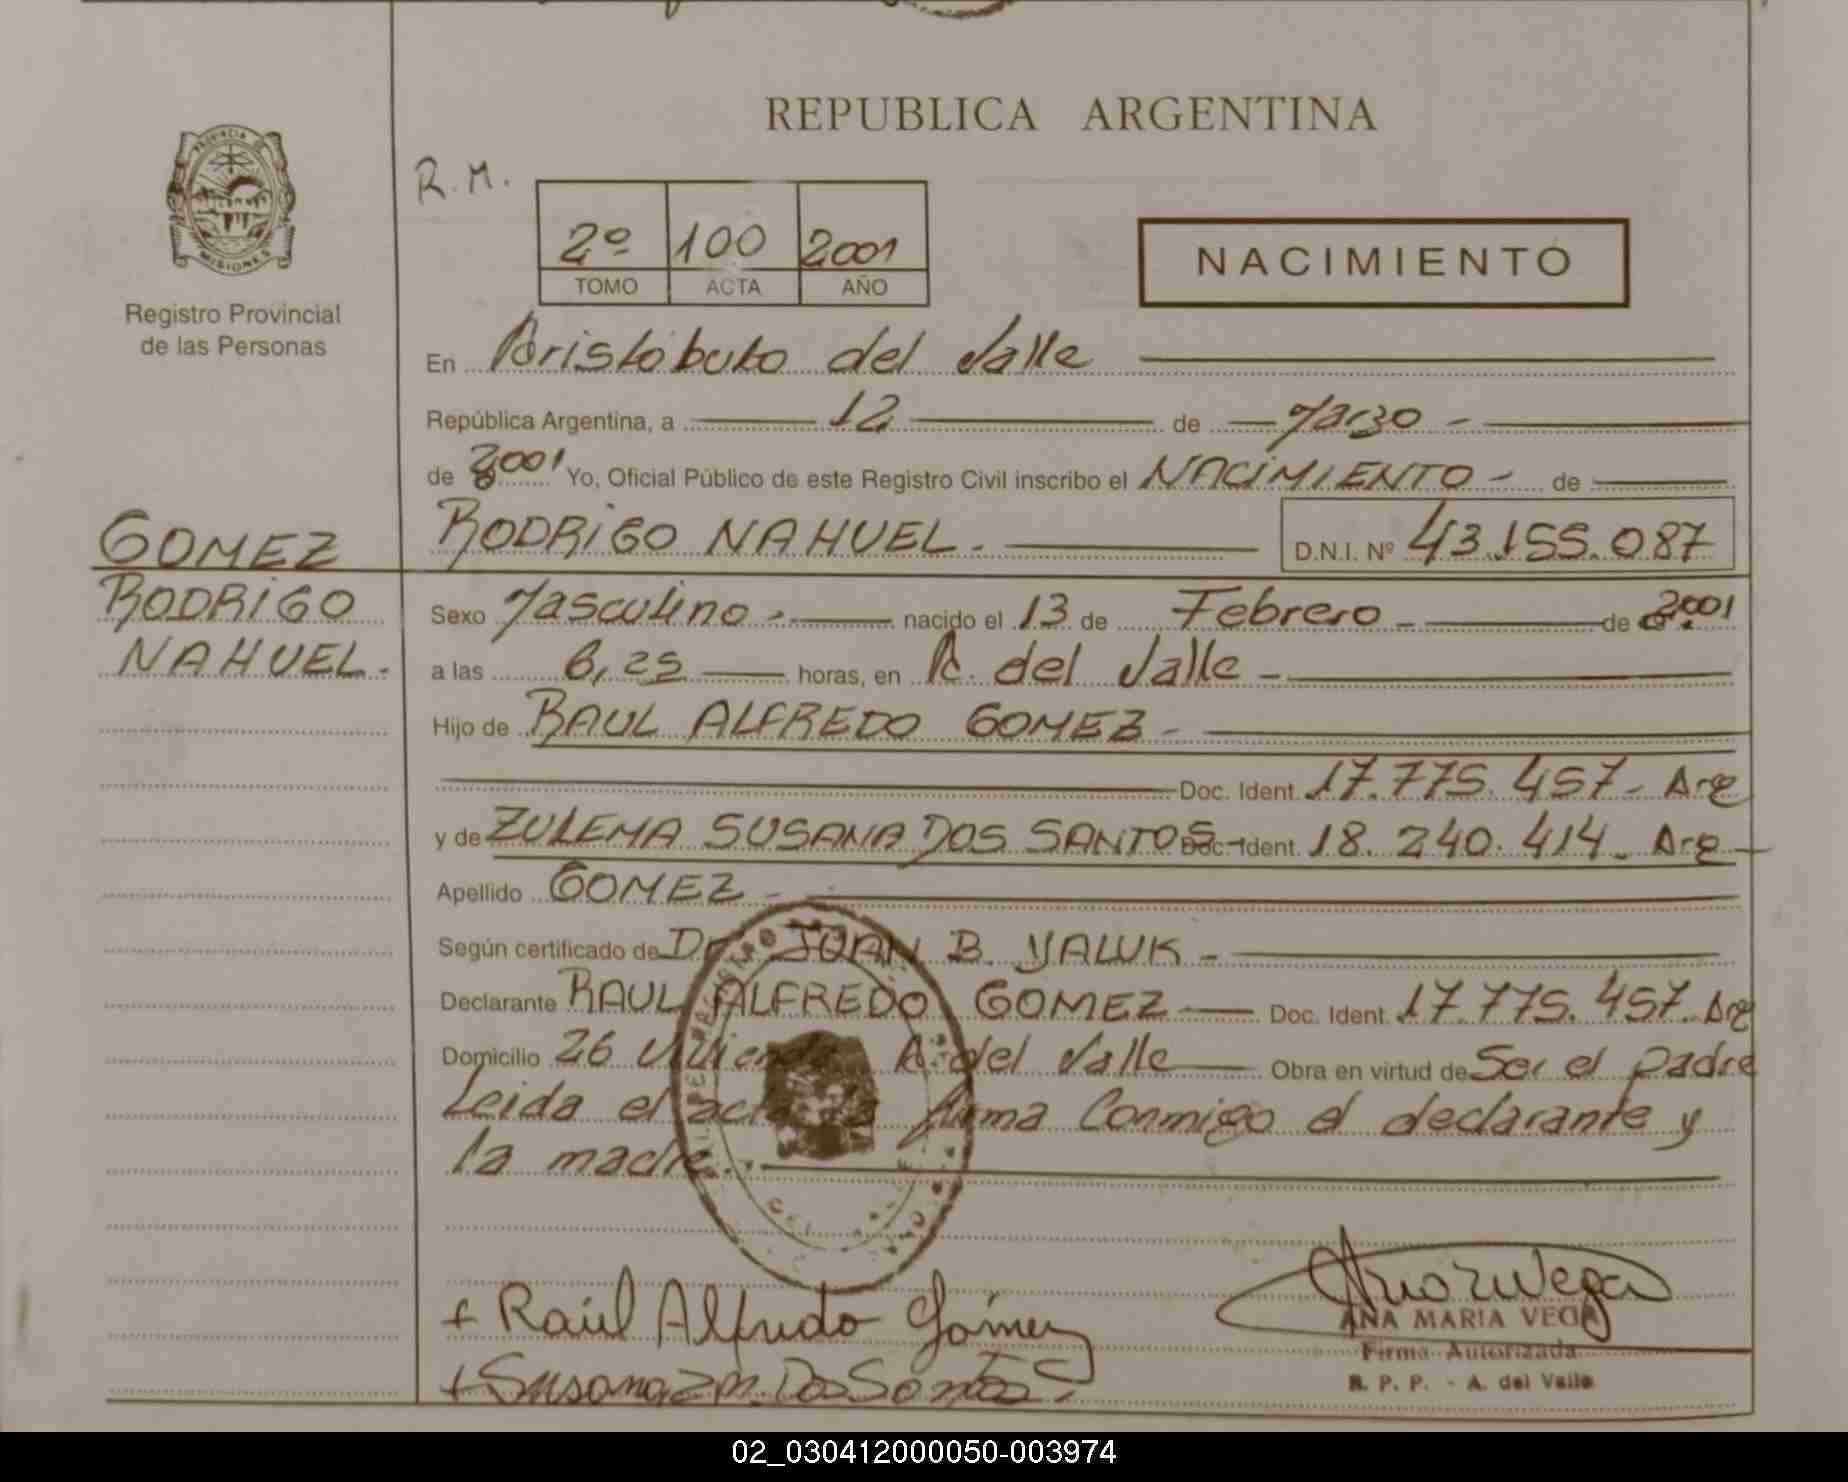 REPUBLICA ARGENTINA
PROVINCIA DE
MISIONES
Registro Provincial
de las Personas
R.M.
2º 100 2001
TOMO ACTA AÑO
NACIMIENTO
En Aristobulo del Valle
República Argentina, a 12 de Marzo -
de 2001 Yo, Oficial Público de este Registro Civil inscribo el NACIMIENTO - de
GOMEZ
RODRIGO NAHUEL. D.N.I. Nº 43.155.087
RODRIGO
Sexo Masculino - nacido el 13 de Febrero - de 2001
NAHUEL.
a las 6,25 horas, en A. del Valle -
Hijo de RAUL ALFREDO GOMEZ -
Doc. Ident. 17.775.457 - Arg
y de ZULEMA SUSANA DOS SANTOS - Doc. Ident. 18.240.414 - Arg
Apellido GOMEZ -
Según certificado de Dr JUAN B. YALUK -
Declarante RAUL ALFREDO GOMEZ Doc. Ident. 17.775.457. Arg
Domicilio 26 Viviendas A. del Valle Obra en virtud de Ser el padre
Leida el acta la firma Conmigo el declarante y
la madre.
+ Raúl Alfredo Gómez
ANA MARIA VEGA
Firma Autorizada
R. P. P. - A. del Valle
+ Susana Dos Santos
02_030412000050-003974